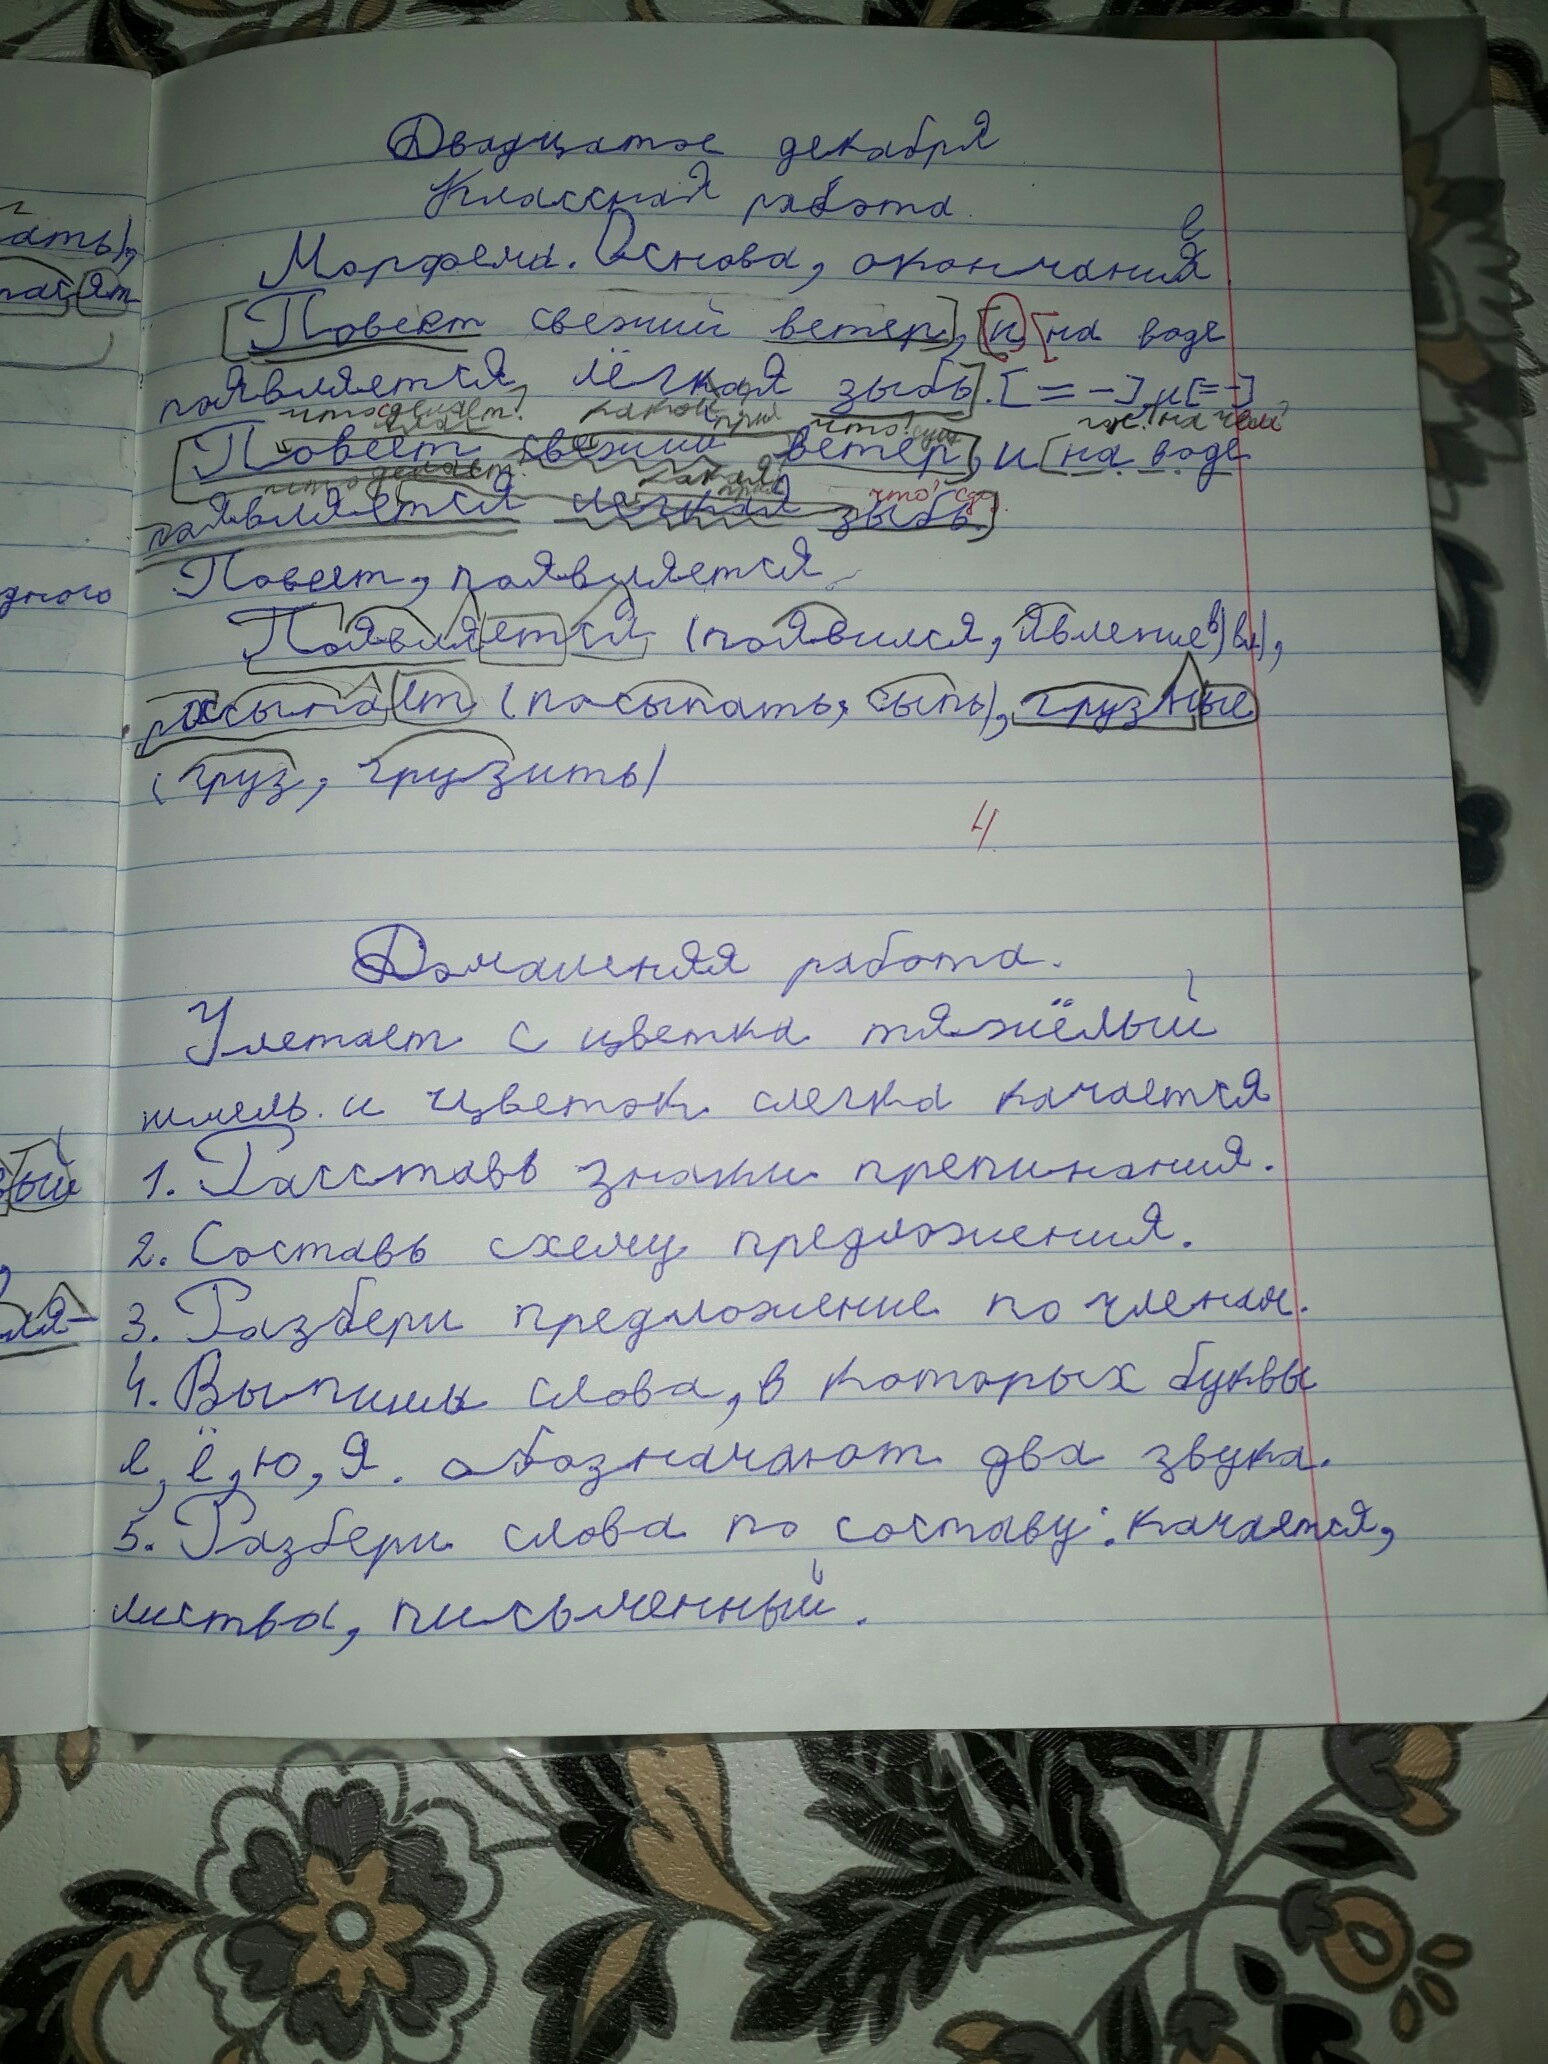 Двадцатое декабря
Классная работа.
Морфема. Основа, окончания
е
[Повеет свежий ветер], [и] [на воде
появляется лёгкая зыбь]. [= -], и [= -]
что сделает? какой? прил что? сущ на чём?
[Повеет свежий ветер], и [на воде
что делает? какая? прил что? сущ
появляется легкая зыбь.]
Повеет, появляется
Появляется (появился, явление) (в/вл),
рассыпает (посыпать, сыпь), грузные
(груз, грузить)
4
Домашняя работа.
Улетает с цветка тяжёлый
шмель. и цветок слегка качается
1. Расставь знаки препинания.
2. Составь схему предложения.
3. Разбери предложение по членам.
4. Выпиши слова, в которых буквы
е, ё, ю, я. обозначают два звука.
5. Разбери слова по составу: качается,
листва, письменный.
ать),
ят
дного
ый
вля-